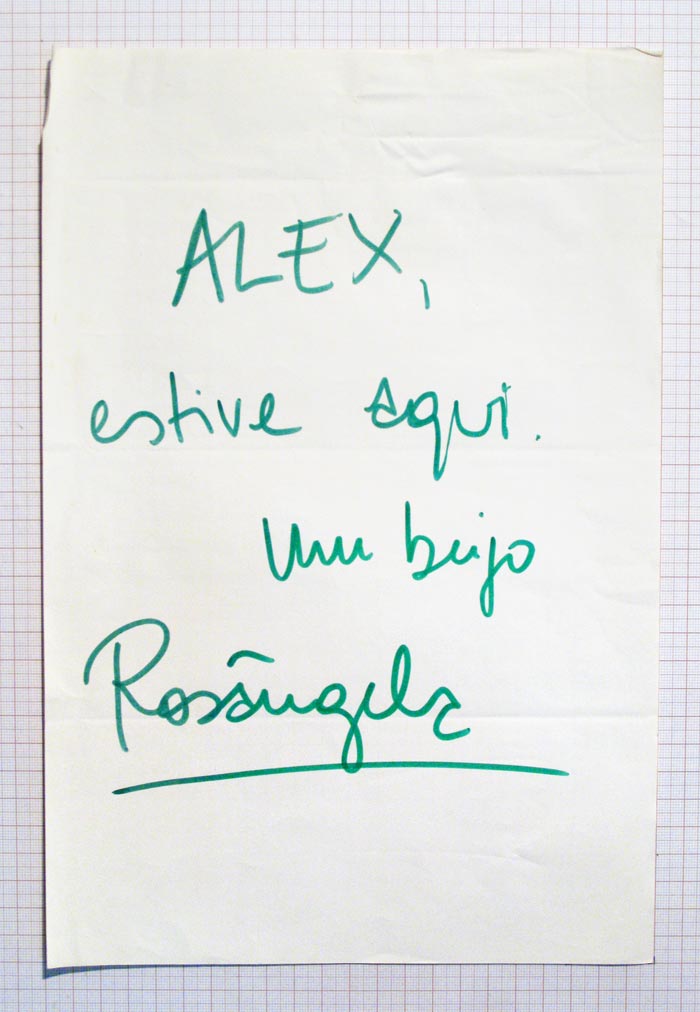 ALEX,
estive aqui.
Um beijo
Rosângela